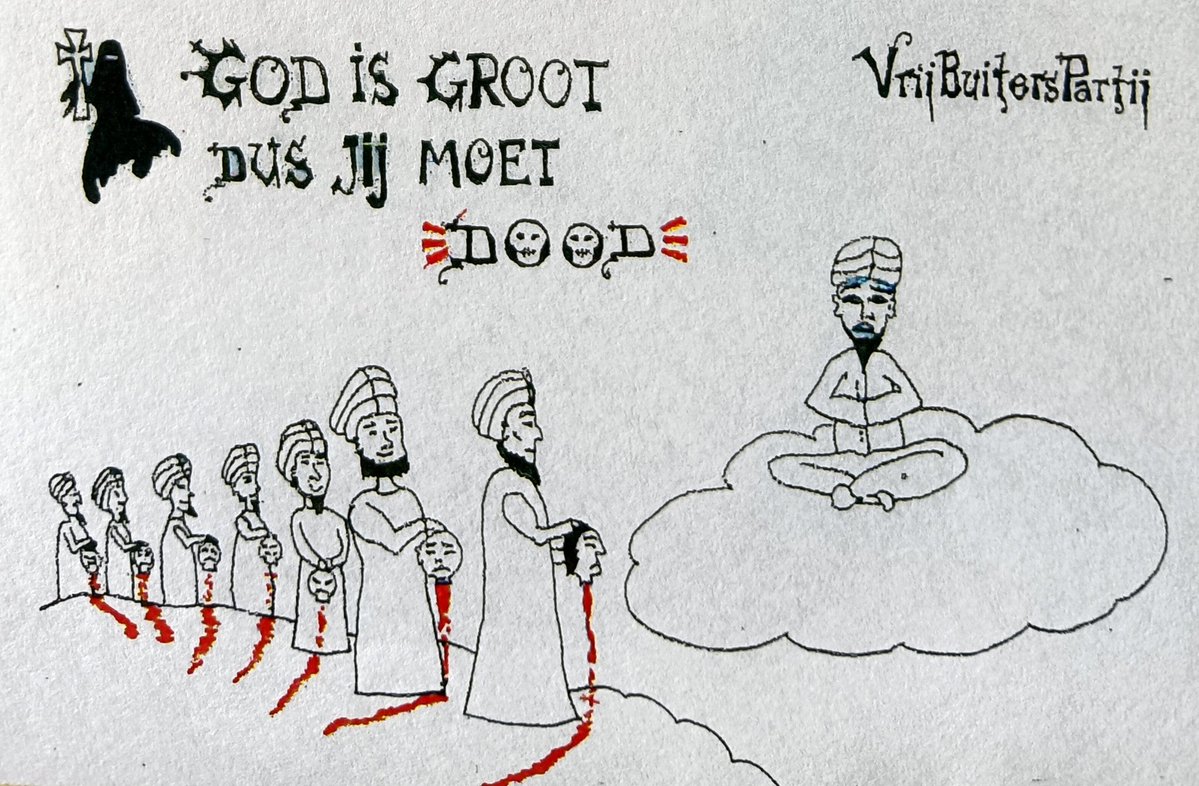 GOD IS GROOT
DUS JIJ MOET
DOOD
VrijBuitersPartij